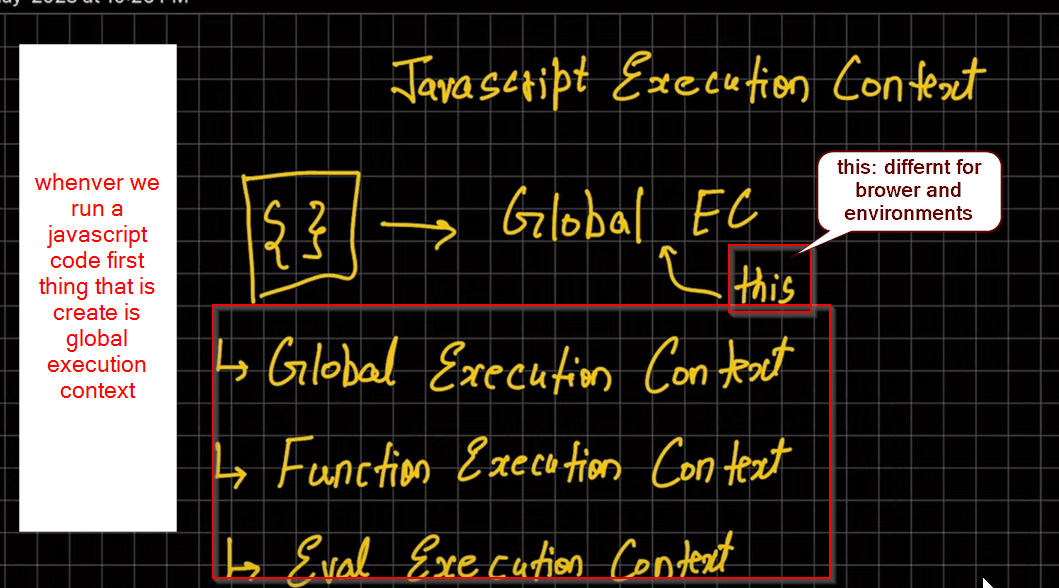 Javascript Execution Context
whenver we
run a
javascript
code first
thing that is
create is
global
execution
context
{ } → Global EC
this: differnt for
brower and
environments
this
↳ Global Execution Context
↳ Function Execution Context
↳ Eval Execution Context